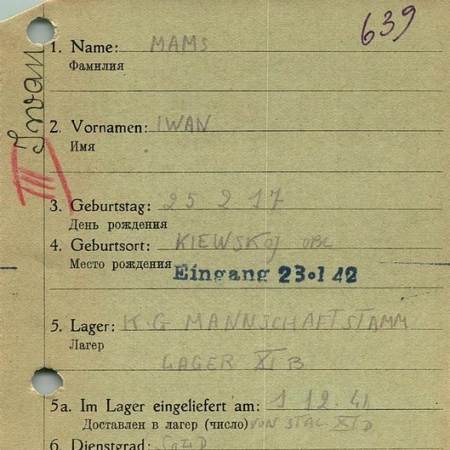 639
Iwan
III
1. Name: MAMS
Фамилия
2. Vornamen: IWAN
Имя
3. Geburtstag: 25 2 17
День рождения
4. Geburtsort: KIEWSKOJ OBL
Место рождения
Eingang 23.1 42
5. Lager: K.G MANNSCHAFTSTAMM
Лагер
LAGER XI B
5a. Im Lager eingeliefert am: 1 12. 41
Доставлен в лагер (число) VON STAL. XI D
6. Dienstgrad: